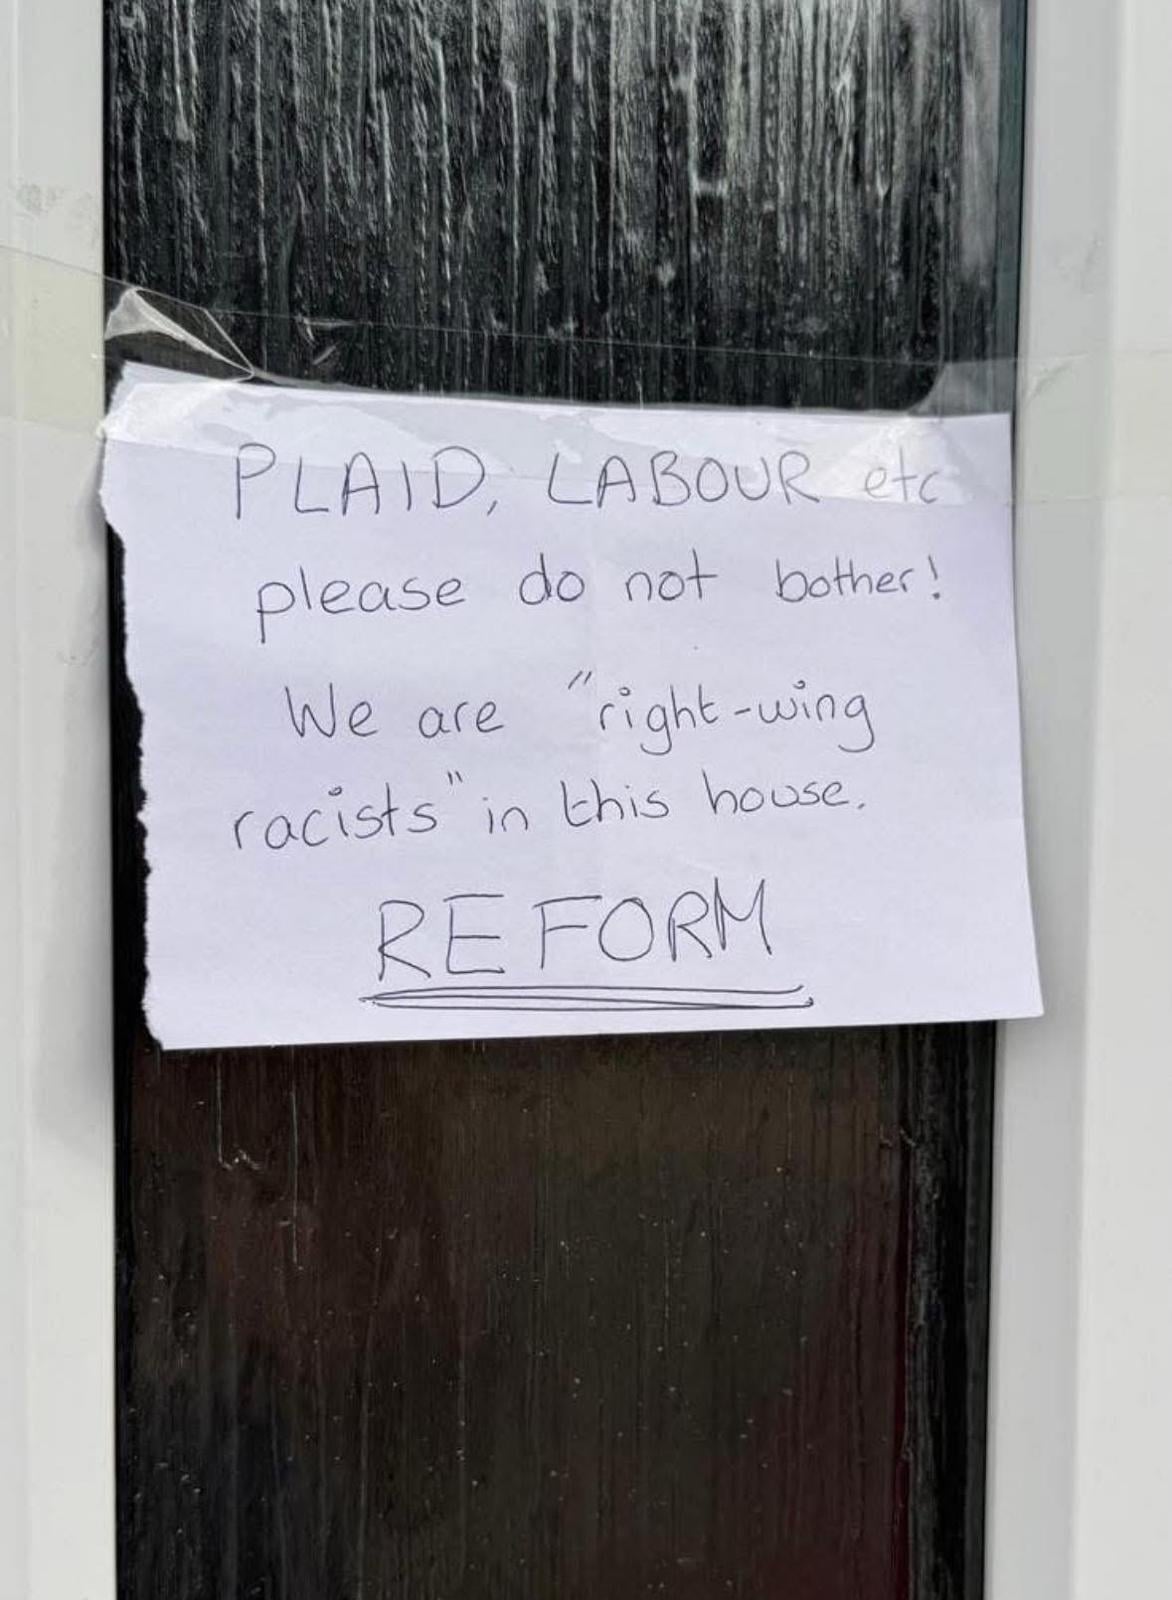 PLAID, LABOUR etc
please do not bother!
We are "right-wing
racists" in this house.
REFORM